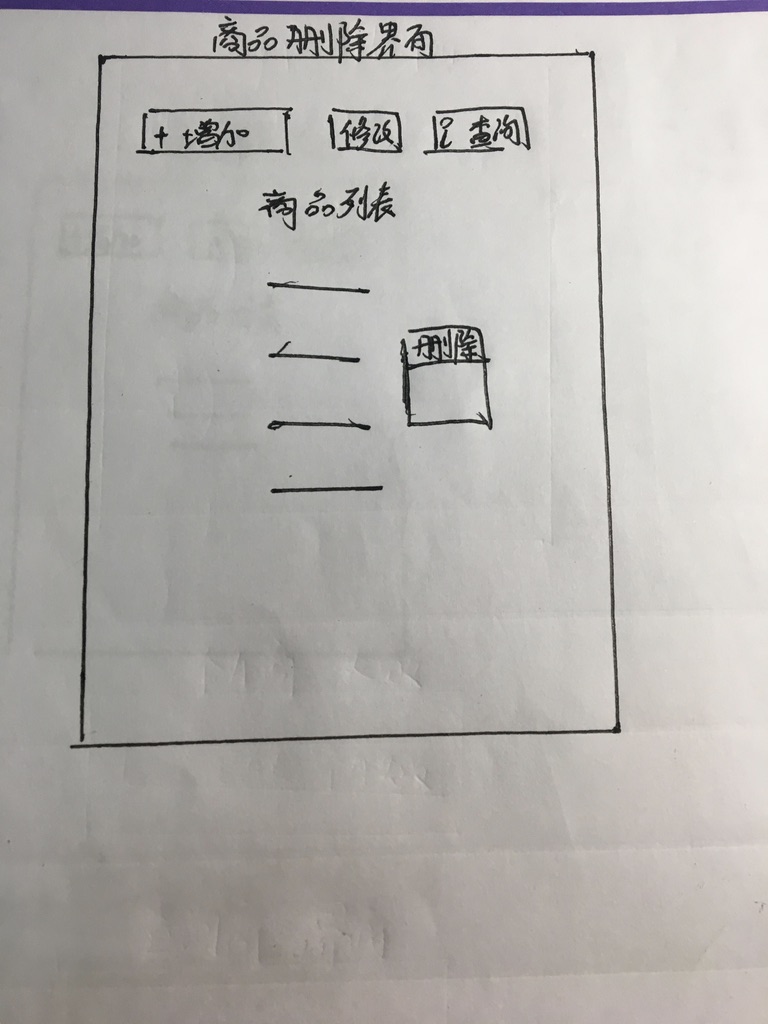 商品删除界面
+ 增加 修改 查询
商品列表
删除